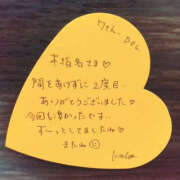 本指名さま♡
間をあけずに2度目
ありがとうございました♡
今回も良かったです
ずーっとしてましたね♡
またね